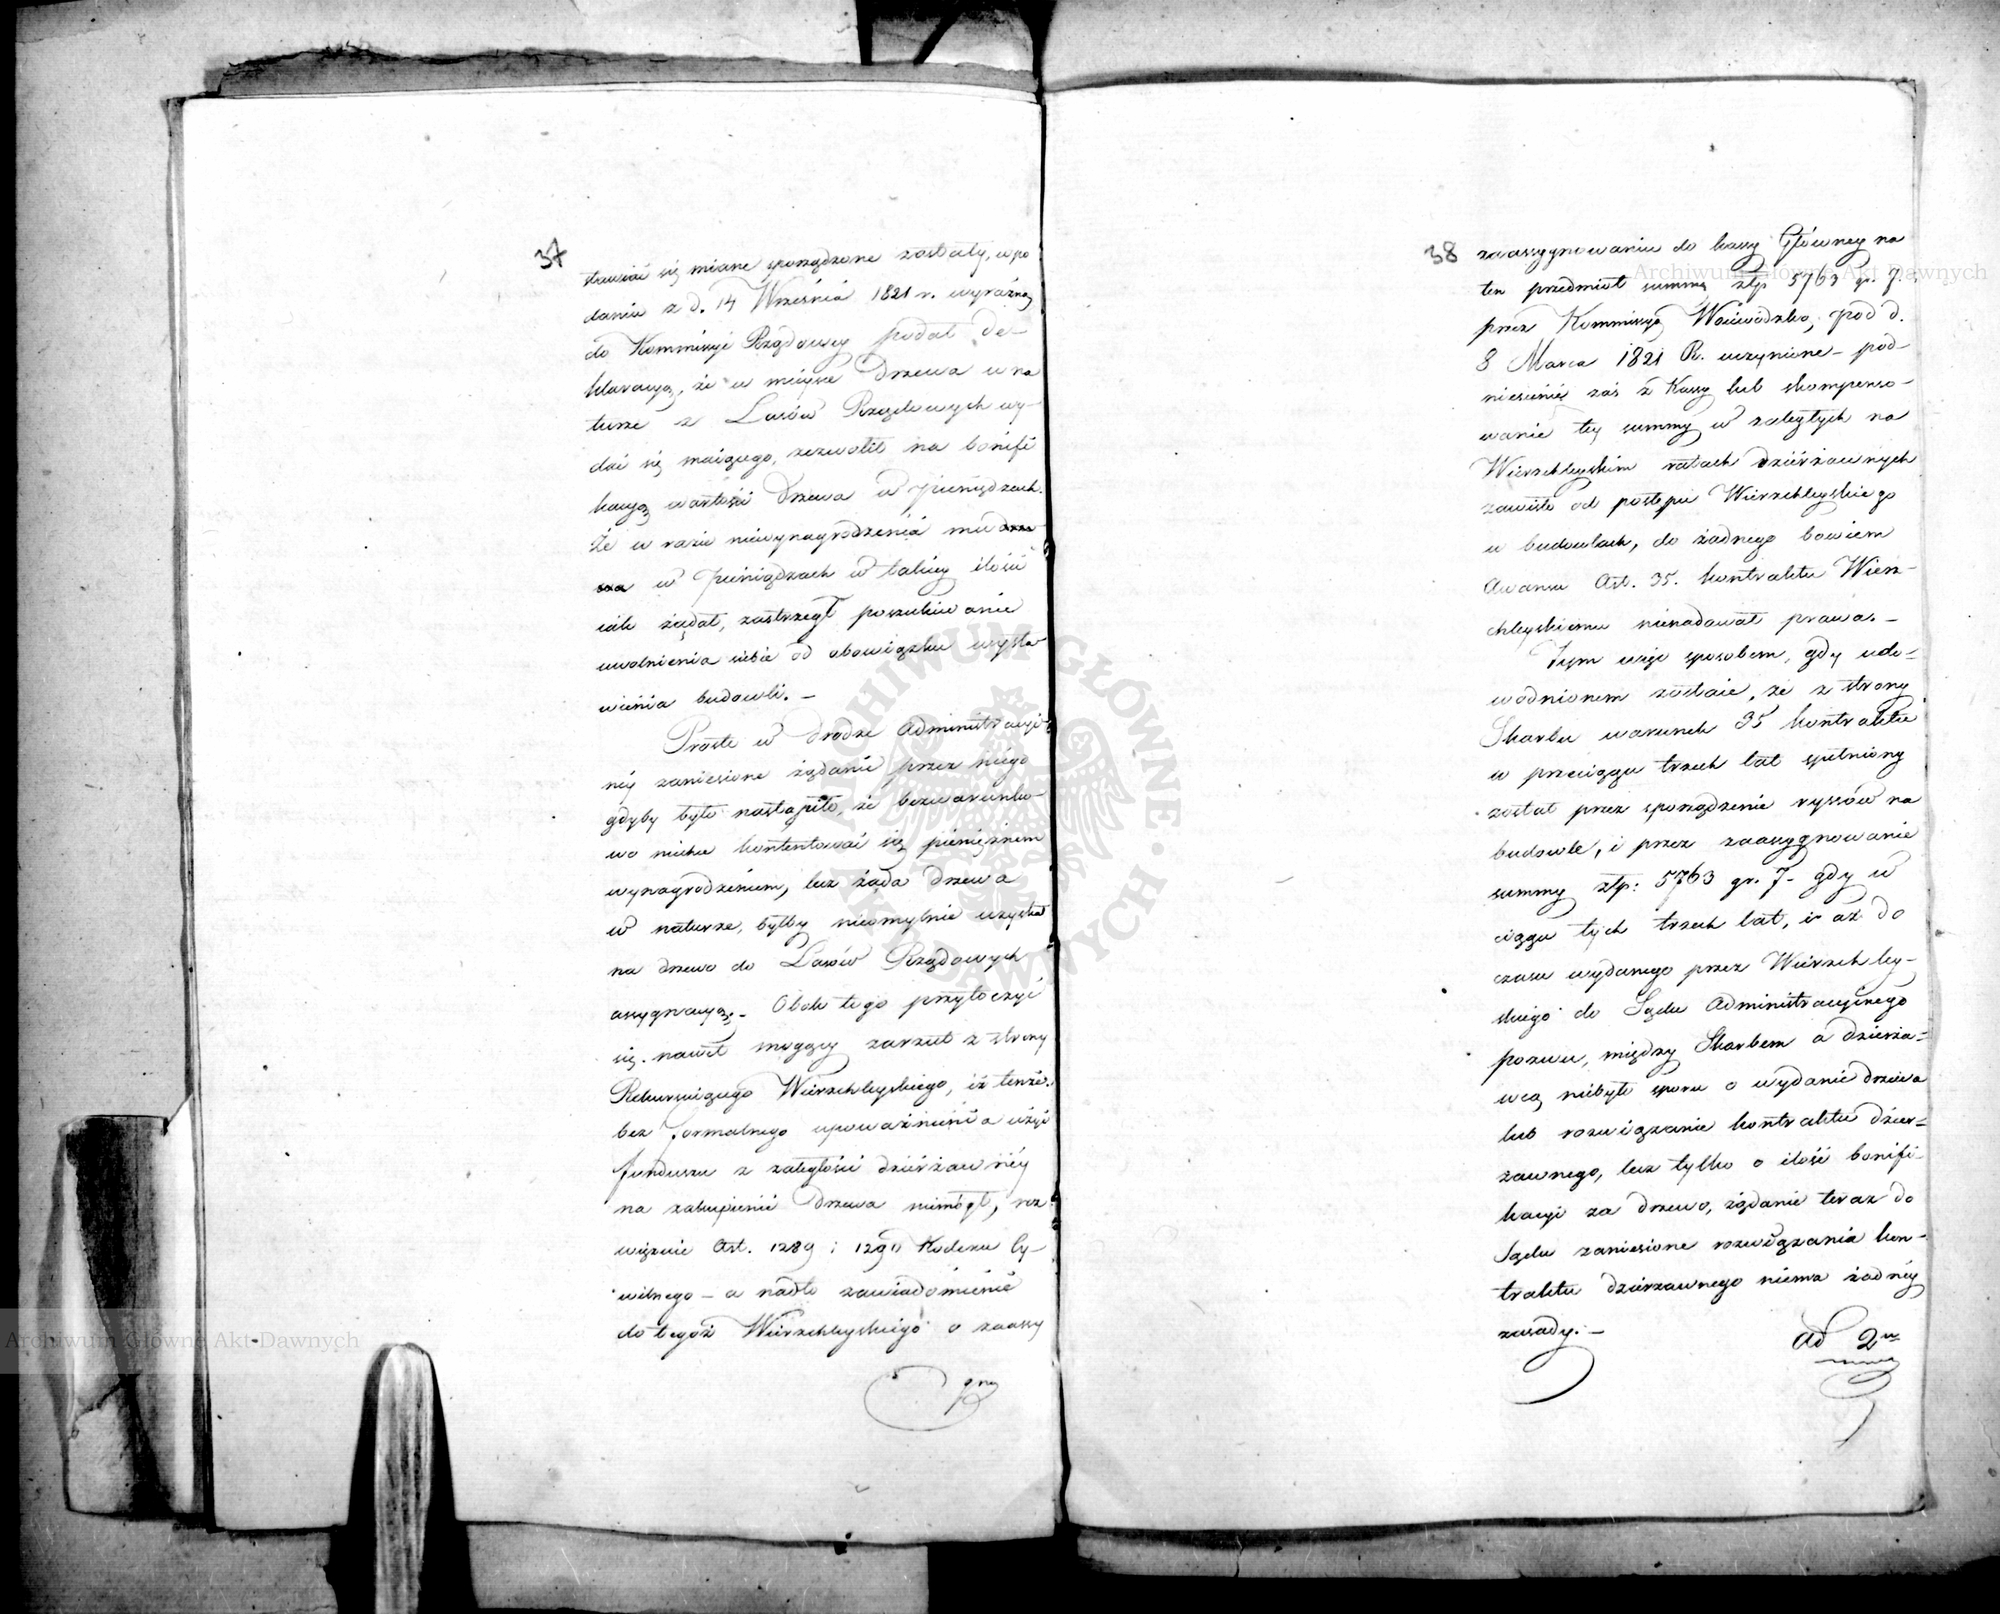 37
stawiać się miane sporządzone zostały, w po
daniu z d. 14 Września 1821 r. wyraźną
do Kommissyi Rządowey podał de-
klaracyą, że w mieysce drzewa w na
turze z Lasów Rządowych wy-
dać się maiącego, zezwolił na bonifi
kacyą wartości drzewa w pieniądzach.
Że w razie niewynagrodzenia mu drze
wa w pieniądzach w takiey ilości
iak żądał, zastrzegł poszukiwanie
uwolnienia siebie od obowiązku wysta
wienia budowli. —
Proste w drodze Administracyi
ney zaniesione żądanie przez niego
gdyby było nastąpiło, że bezwarunko-
wo niechce kontentować się pieniężnem
wynagrodzeniem, lecz żąda drzewa
w naturze, byłby nieomylnie uzyskał
na drzewo do Lasów Rządowych
assygnacyą. — Obok tego przytoczyć
się nawet mogący zarzut z strony
Rekuruiącego Wierzchleyskiego, iż tenże
bez formalnego upoważnienia użyć
funduszu z zaległości dzierżawney
na zakupienie drzewa niemógł, roz
wiązuie Art. 1289 i 1290 Kodexu Cy-
wilnego — a nadto zawiadomienie
do tegoż Wierzchleyskiego o zaassy
gno
38
zaassygnowaniu do kassy Główney na
ten przedmiot summy złp 5763 gr. 7.
przez Kommissyą Woiewódzką, pod d.
8 Marca 1821 R. uczynione — pod-
niesienie zaś z Kassy lub skompenso-
wanie tey summy w zaległych na
Wierzchleyskim ratach dzierżawnych
zawisło od postępu Wierzchleyskiego
w budowlach, do żadnego bowiem
Awansu Art. 35. kontraktu Wierz-
chleyskiemu nienadawał prawa. —
Tym więc sposobem, gdy udo-
wodnionem zostaie, że z strony
Skarbu warunek 35 kontraktu
w przeciągu trzech lat spełniony
został przez sporządzenie ryssów na
budowle, i przez zaassygnowanie
summy złp: 5763 gr. 7 — gdy w
ciągu tych trzech lat, i aż do
czasu wydanego przez Wierzchley-
skiego do Sądu Administracyinego
pozwu, między Skarbem a dzierża-
wcą niebyło sporu o wydanie drzewa
lub rozwiązanie kontraktu dzier-
żawnego, lecz tylko o ilość bonifi-
kacyi za drzewo, żądanie teraz do
Sądu zaniesione rozwiązania kon-
traktu dzierżawnego niema żadney
zasady. —
Ad 2um
Archiwum Główne Akt Dawnych
Archiwum Główne Akt Dawnych
ARCHIWUM GŁÓWNE AKT DAWNYCH